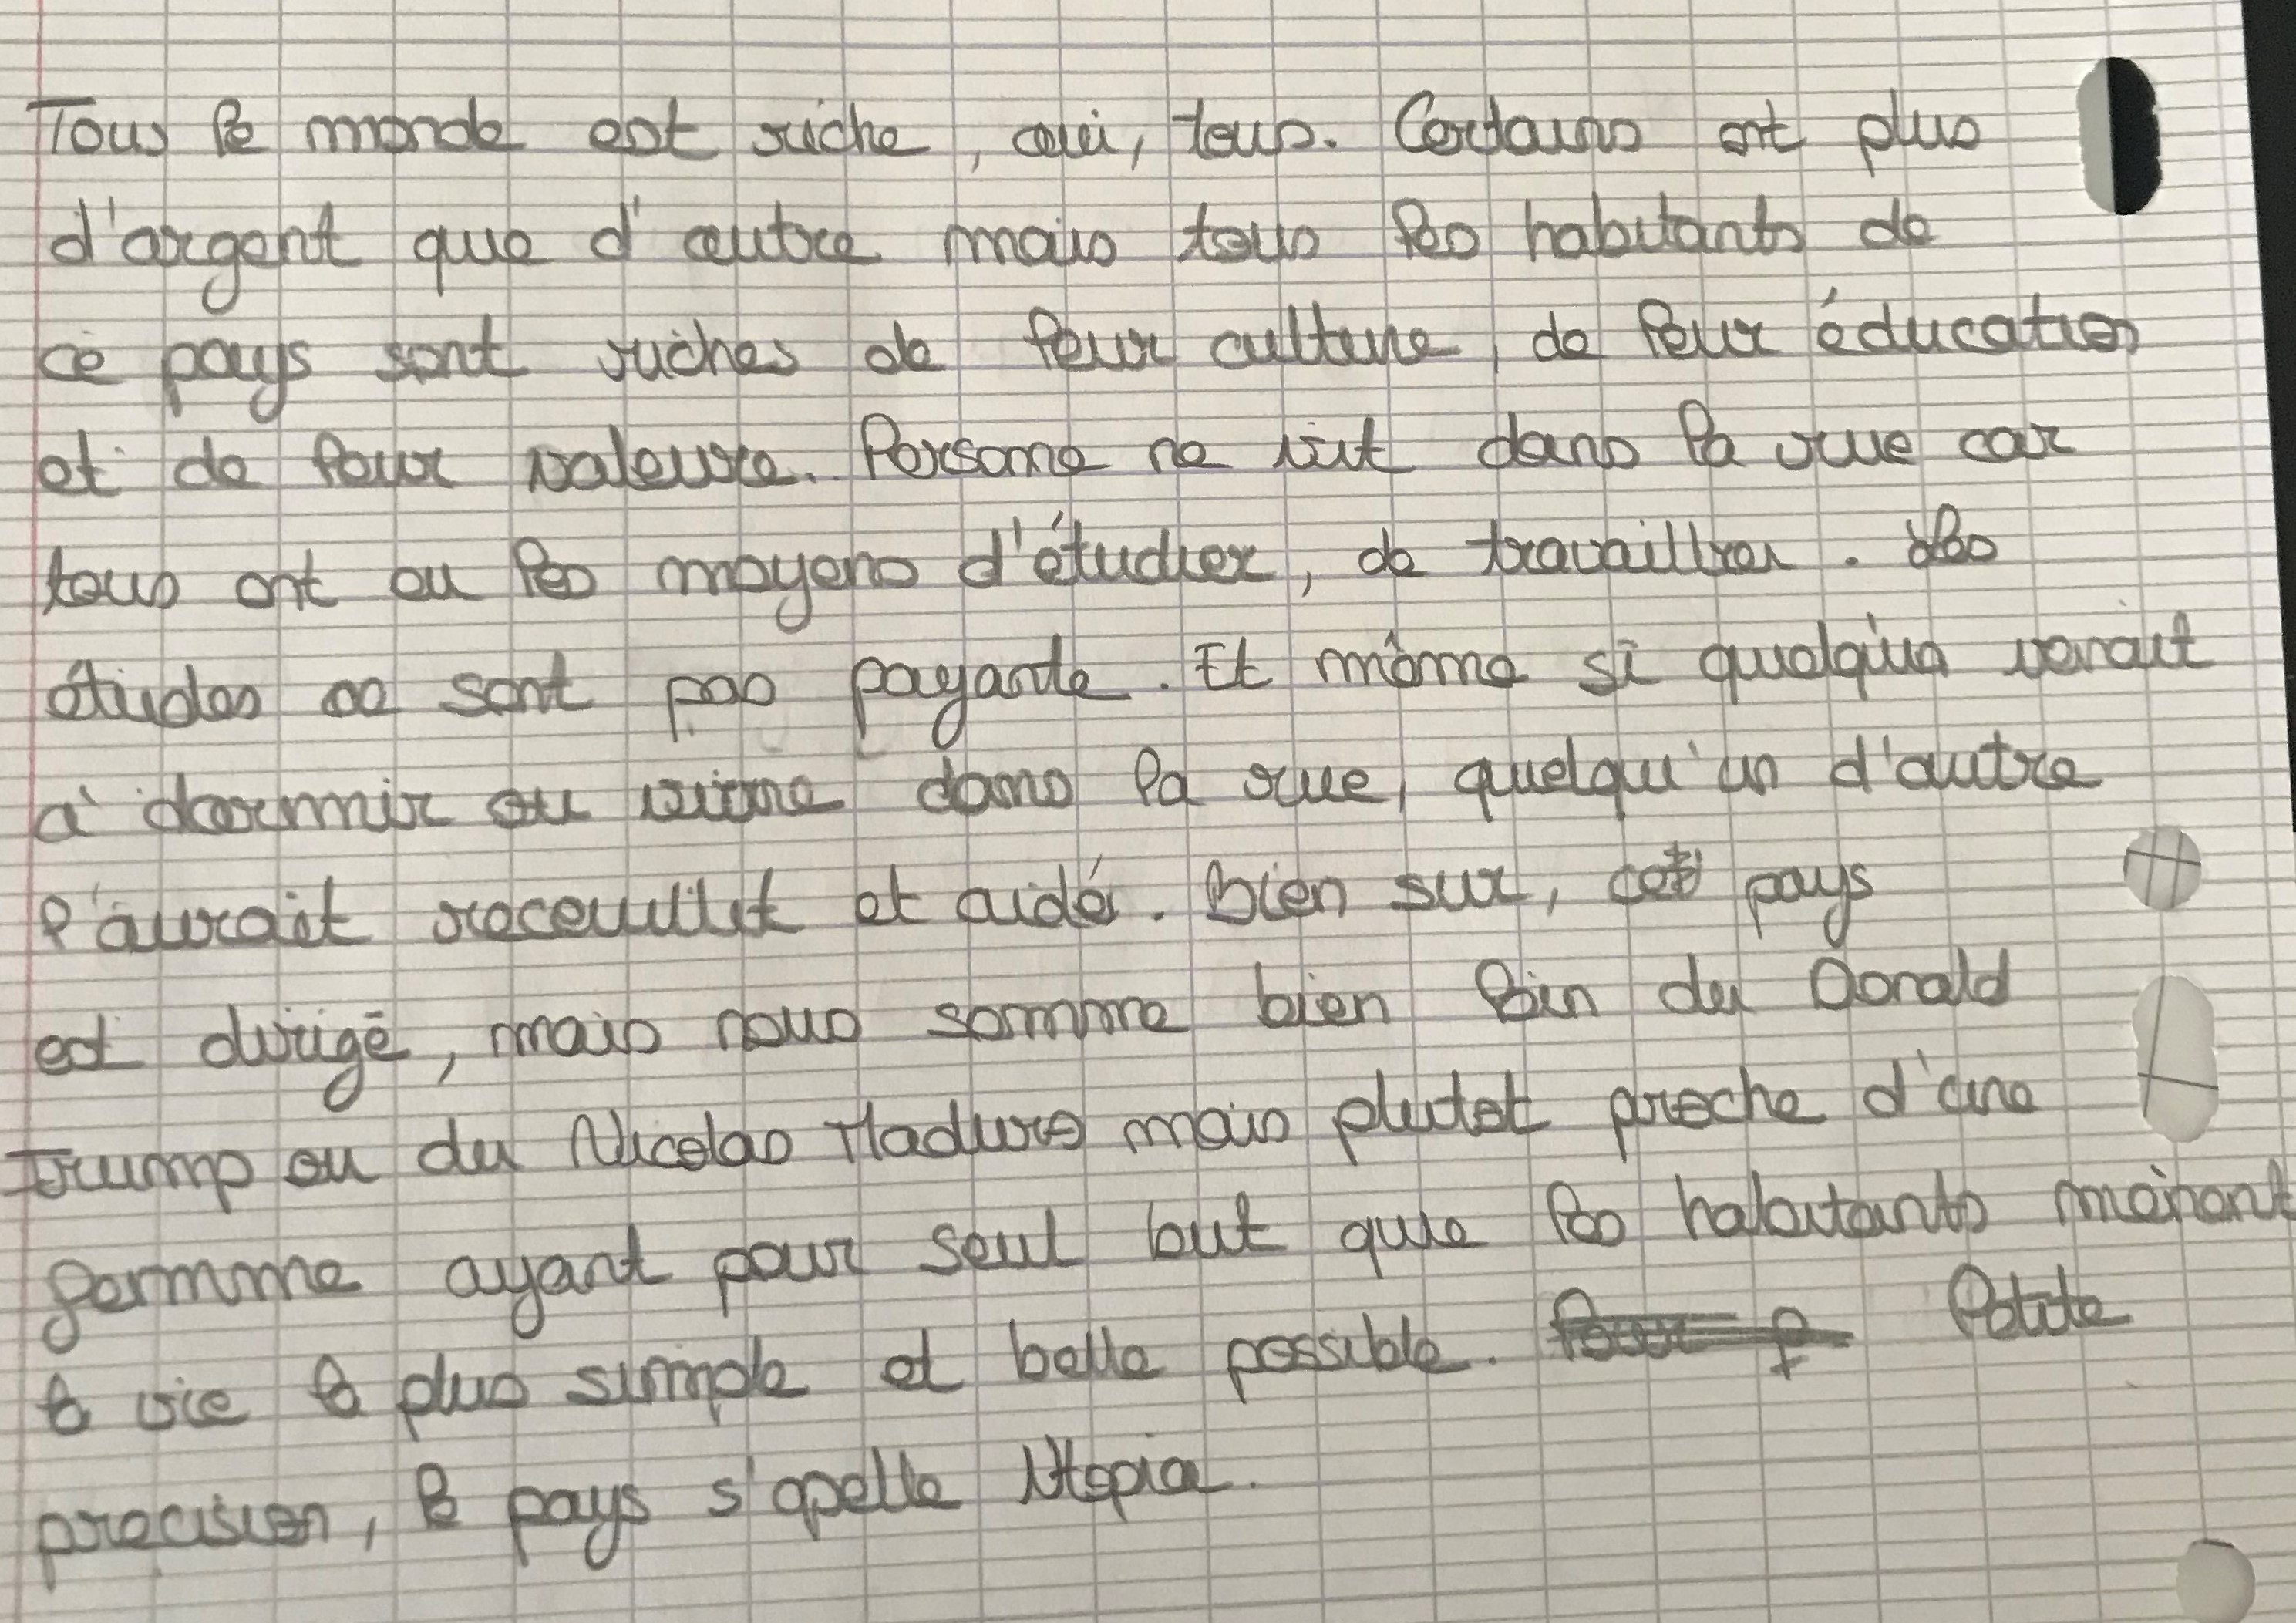 Tous le monde est riche, oui, tous. Certains ont plus
d'argent que d'autre mais tous les habitants de
ce pays sont riches de leur culture, de leur éducation
et de leur valeure. Personne ne vit dans la rue car
tous ont eu les moyens d'étudier, de travailler. Les
études ne sont pas payante. Et même si quelqu'un venait
à dormir ou vivre dans la rue, quelqu'un d'autre
l'aurait receuillit et aidé. Bien sur, ce pays
est dirigé, mais nous somme bien loin du Donald
Trump ou du Nicolas Maduro mais plutot proche d'une
femme ayant pour seul but que les habitants mènent
la vie la plus simple et belle possible. Petite
precision, le pays s'apelle Utopia.